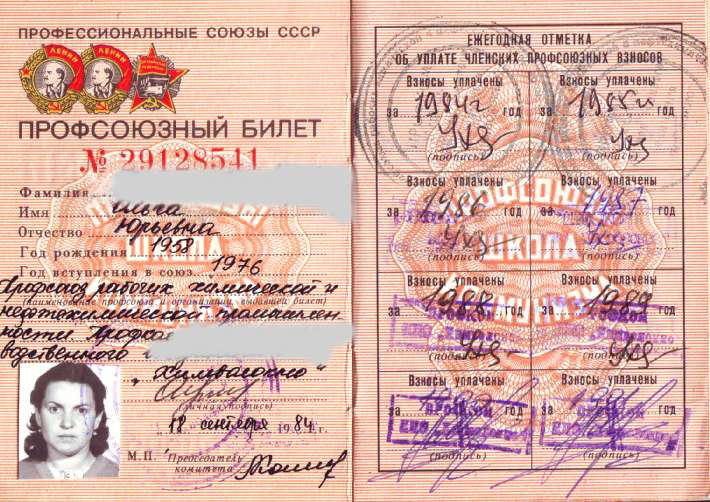 ПРОФЕССИОНАЛЬНЫЕ СОЮЗЫ СССР
ЛЕНИН ЛЕНИН
ПРОФСОЮЗНЫЙ БИЛЕТ
№ 29128541
Фамилия
Имя Ольга
Отчество Юрьевна
Год рождения 1958
Год вступления в союз 1976
Профсоюз рабочих химической и
(наименование профсоюза и организации, выдавшей билет)
нефтехимической промышлен
ности. Профко
водственного
"Химволокно"
(личная подпись)
18 сентября 1984 г.
М.П. Председатель
комитета
ЕЖЕГОДНАЯ ОТМЕТКА
ОБ УПЛАТЕ ЧЛЕНСКИХ ПРОФСОЮЗНЫХ ВЗНОСОВ
Взносы уплачены Взносы уплачены
за 1984 г год за 1985 год
(подпись) (подпись)
Взносы уплачены Взносы уплачены
за 1986 год за 1987 год
(подпись) (подпись)
Взносы уплачены Взносы уплачены
за 1988 год за 1989 год
(подпись) (подпись)
Взносы уплачены Взносы уплачены
за год за год
ПРОФКОМ ПРОФКОМ
(подпись) (подпись)
ПРОФСОЮЗЫ
ШКОЛА